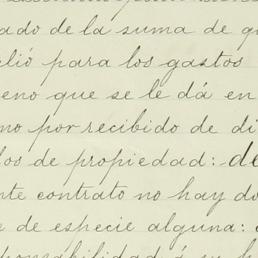 ado de la suma de qu
lió para los gastos
eno que se le dá en
mo por recibido de di
los de propiedad: de
nte contrato no hay do
e de especie alguna: